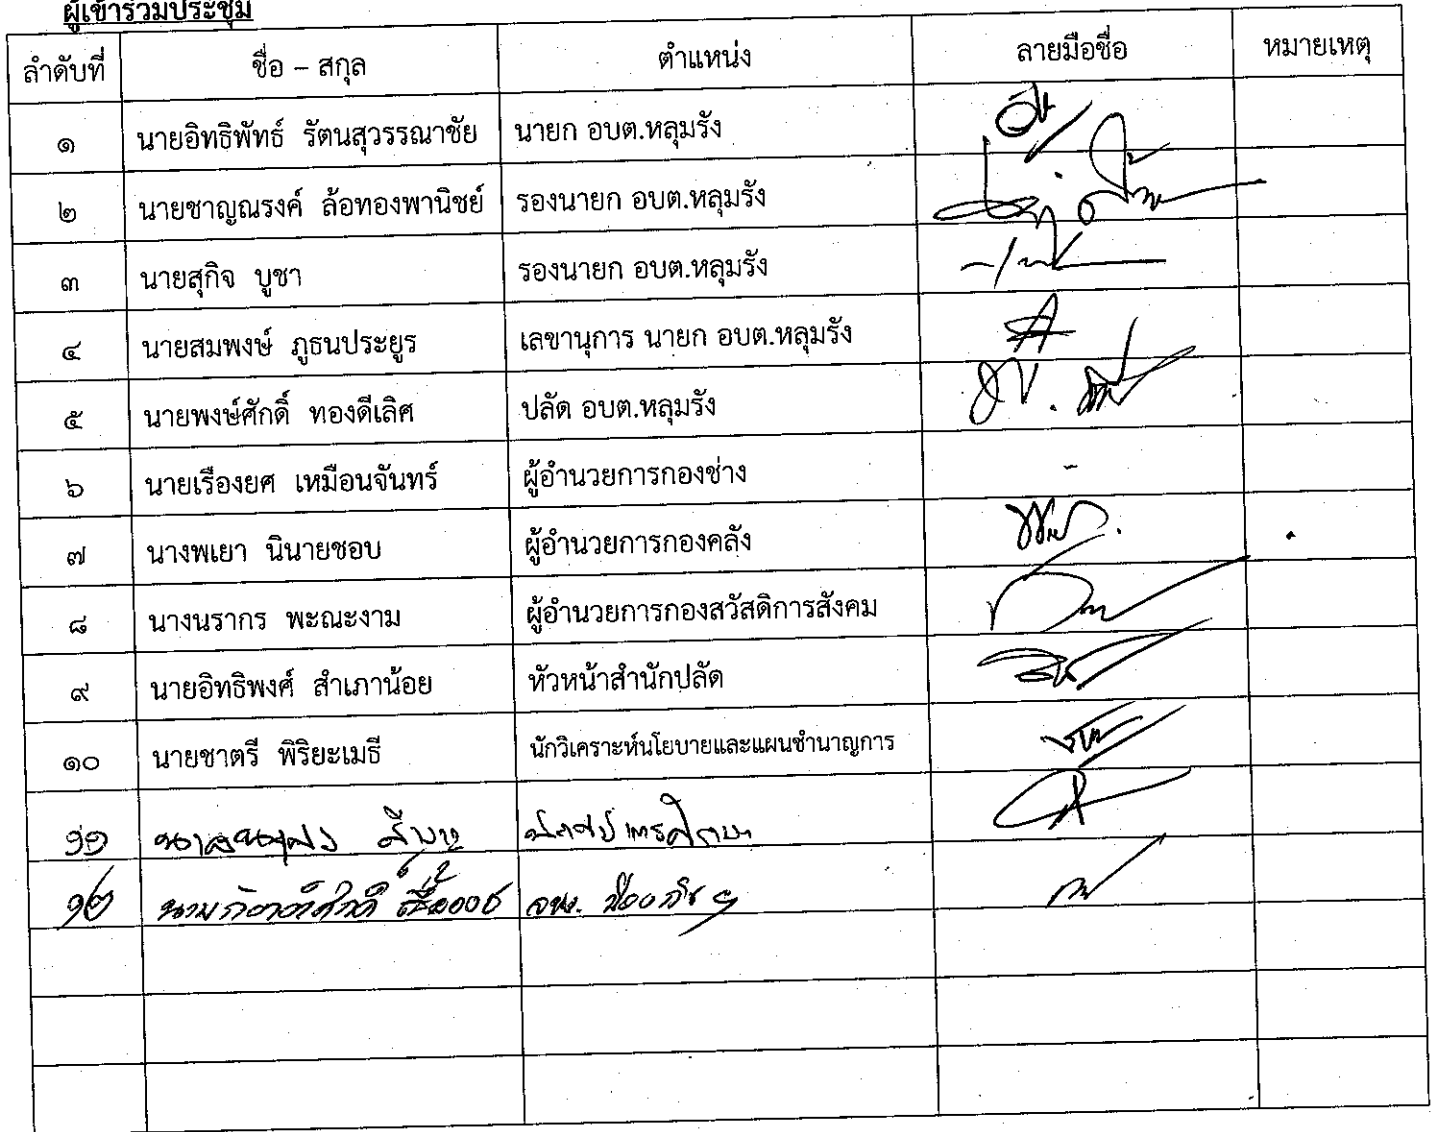 ผู้เข้าร่วมประชุม
ลำดับที่ ชื่อ – สกุล ตำแหน่ง ลายมือชื่อ หมายเหตุ
๑ นายอิทธิพัทธ์ รัตนสุวรรณาชัย นายก อบต.หลุมรัง
๒ นายชาญณรงค์ ล้อทองพานิชย์ รองนายก อบต.หลุมรัง
๓ นายสุกิจ บูชา รองนายก อบต.หลุมรัง
๔ นายสมพงษ์ ภูธนประยูร เลขานุการ นายก อบต.หลุมรัง
๕ นายพงษ์ศักดิ์ ทองดีเลิศ ปลัด อบต.หลุมรัง
๖ นายเรืองยศ เหมือนจันทร์ ผู้อำนวยการกองช่าง -
๗ นางพเยา นินายชอบ ผู้อำนวยการกองคลัง
๘ นางนรากร พะณะงาม ผู้อำนวยการกองสวัสดิการสังคม
๙ นายอิทธิพงศ์ สำเภาน้อย หัวหน้าสำนักปลัด
๑๐ นายชาตรี พิริยะเมธี นักวิเคราะห์นโยบายและแผนชำนาญการ
๑๑
๑๒ จพง. ป้องกันฯ